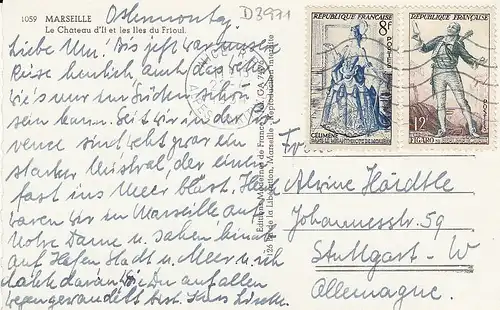 1059 MARSEILLE
Le Chateau d'If et les Iles du Frioul.
Ostermontag
D3971
Liebe Uni! Bis jetzt war unsere
Reise herrlich, auch das Wetter
wie's nur im Süden schön
sein kann. Seit wir in der Pro-
vence sind weht zwar ein
starker Mistral, der einen
fast ins Meer bläst. Heute
waren wir in Marseille auf
Notre Dame u. sahen hinab
auf Hafen Stadt u. Meer u. ich
dachte daran wie Du auf allen
hast. Hans Liselotte
Editions Modernes de France
26 de la Libération, Marseille Reproduction interdite
REPUBLIQUE FRANÇAISE
8F
POSTES
CÉLIMÈNE
REPUBLIQUE FRANÇAISE
12F
FIGARO
Alwine Härdtle
Johannesstr. 59
Stuttgart-W
Allemagne.